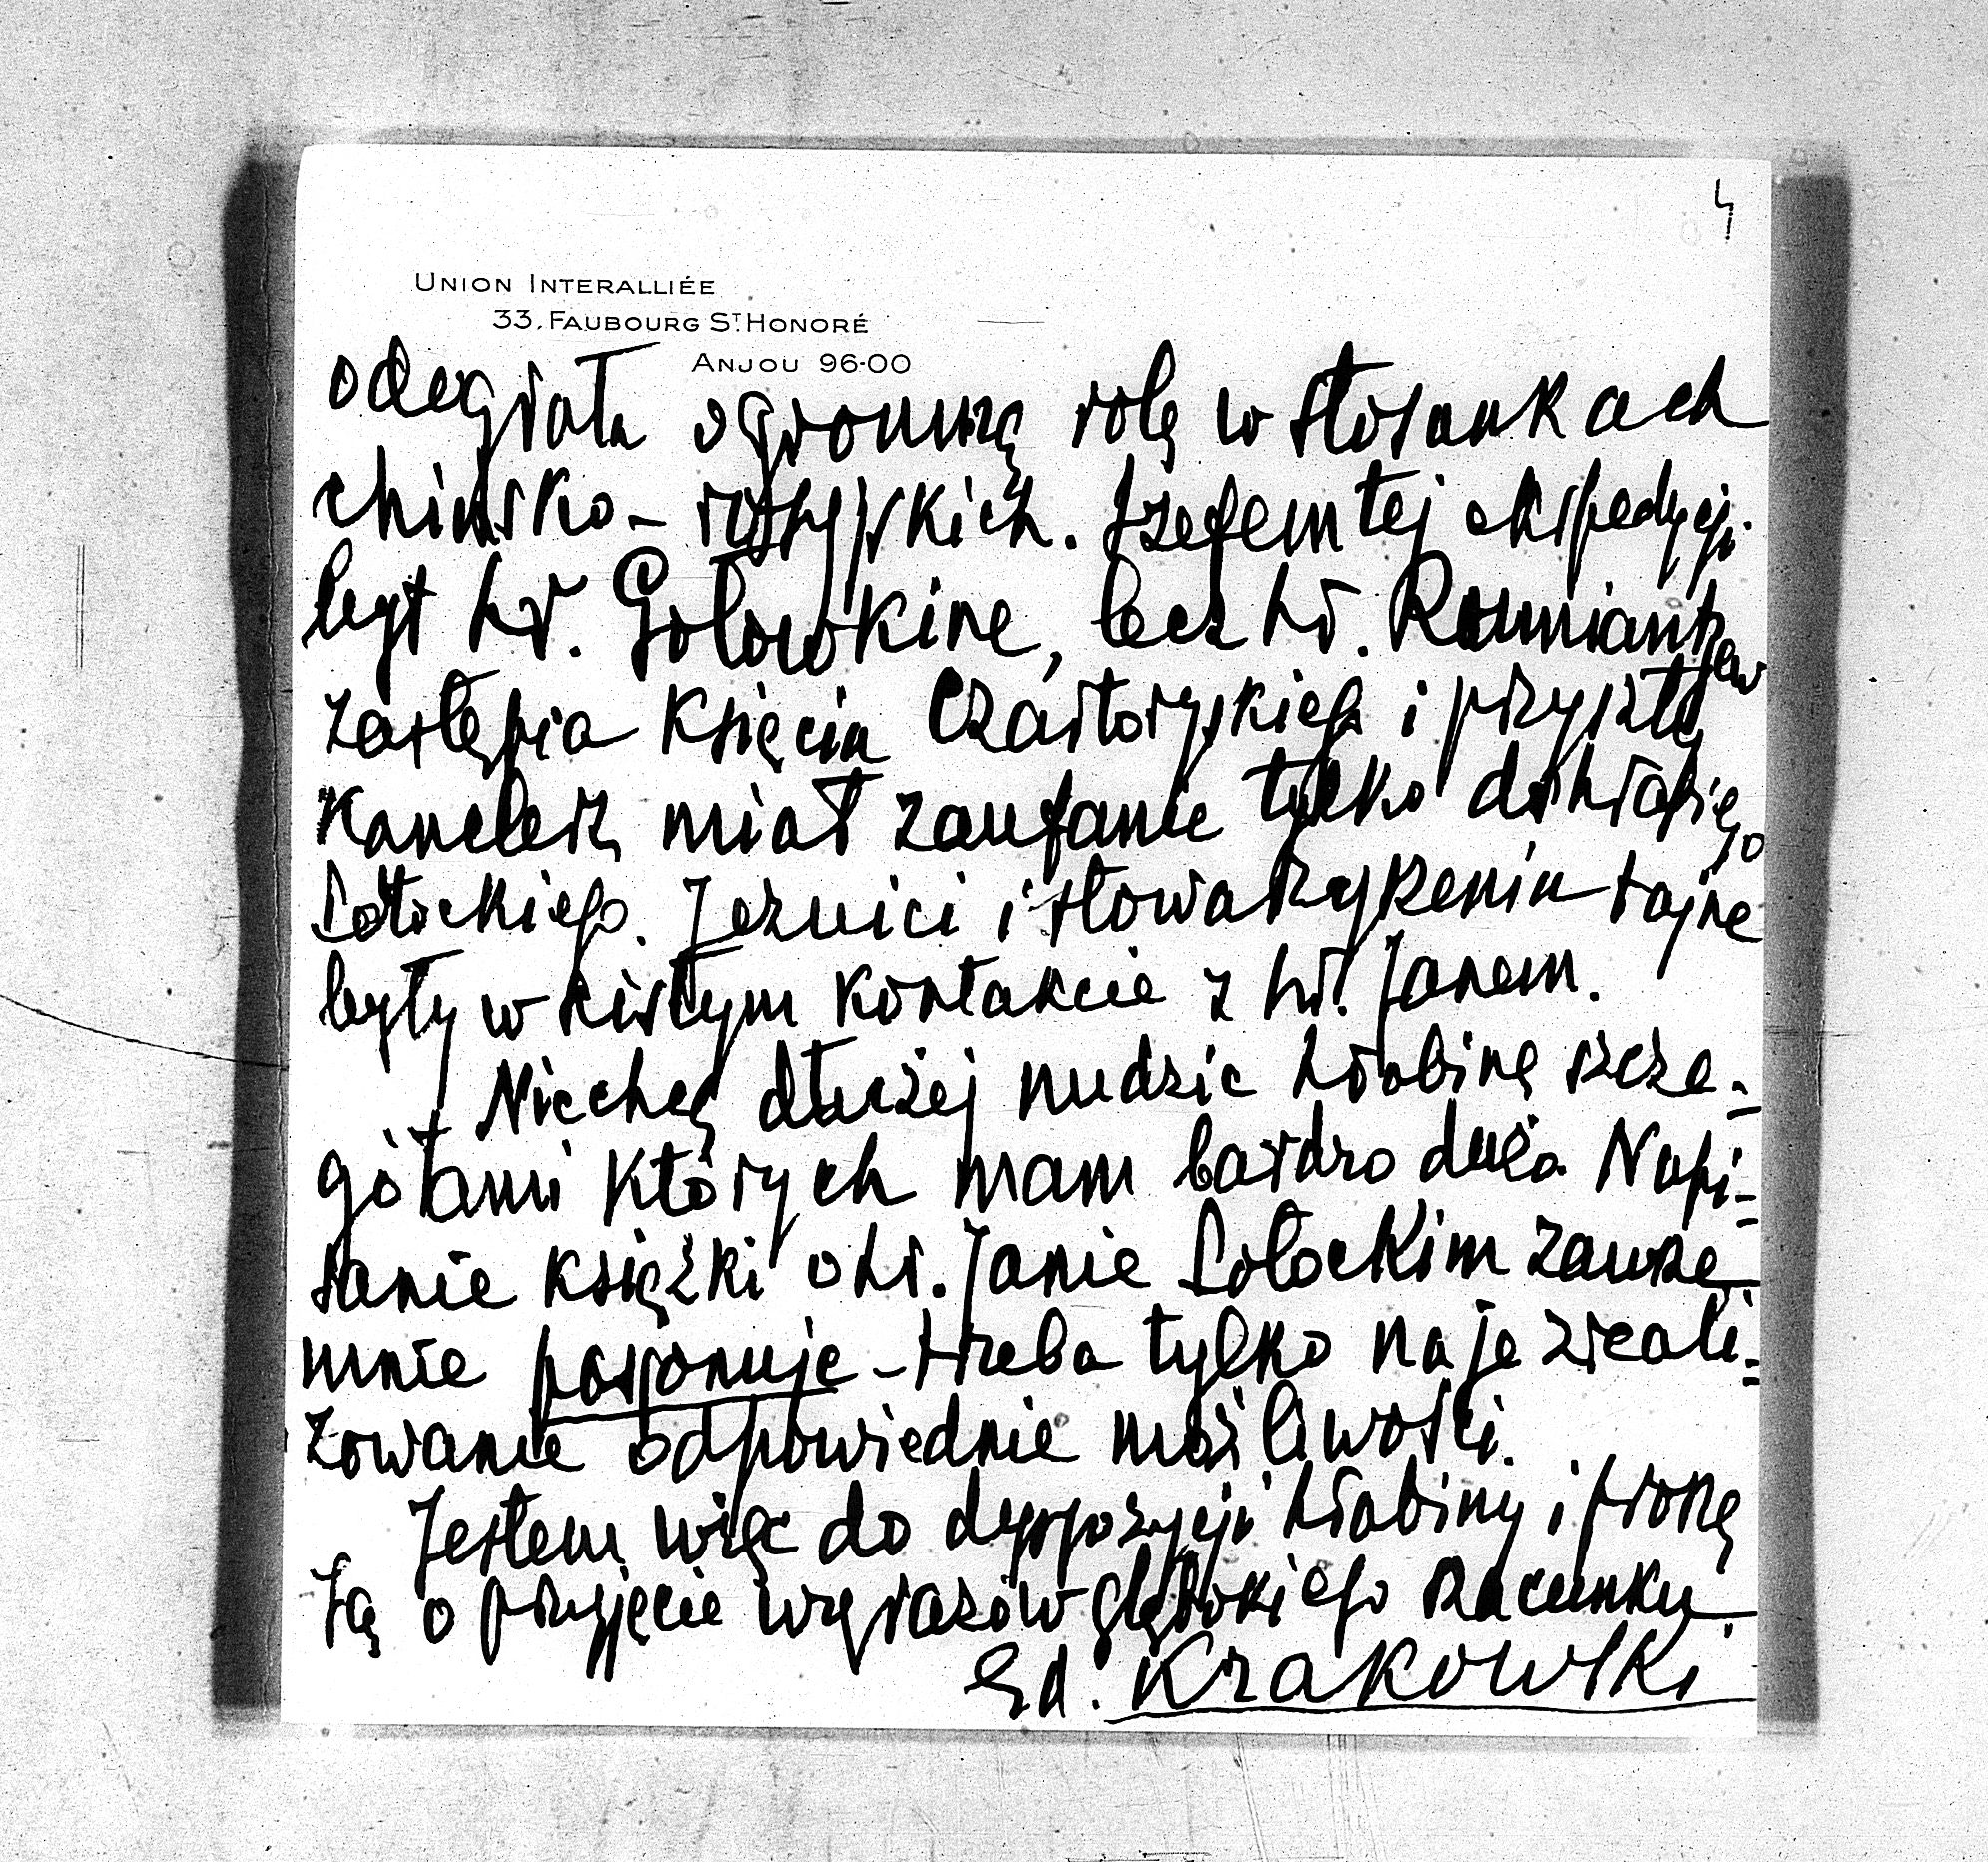 4
UNION INTERALLIÉE
33, FAUBOURG ST HONORÉ
ANJOU 96-00
odegrała ogromną rolę w stosunkach
chińsko-rosyjskich. Szefem tej ekspedycji
był hr. Gołowkine, lecz hr. Roumiantzew
zastępia księcia Czartoryskiego i przyszły
Kanclerz miał zaufanie tylko do hrabiego
Potockiego. Jezuici i stowarzyszenia tajne
były w ścisłym kontakcie z hr. Janem.
Niechcę dłużej nudzić hrabinę szcze-
gółami których mam bardzo dużo. Napi-
sanie książki o hr. Janie Potockim zawsze
mnie pasjonuje - trzeba tylko na je zreali-
zowanie odpowiednie możliwości.
Jestem więc do dyspozycji hrabiny i proszę
Ją o przyjęcie wyrazów głębokiego szacunku.
Ed. Krakowski